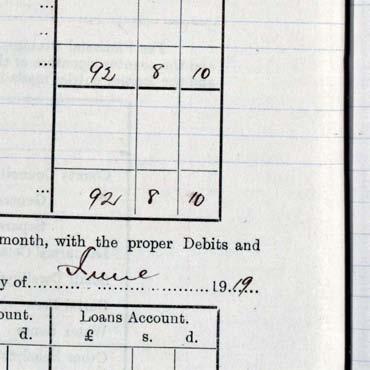 ... 92 8 10
... 92 8 10
month, with the proper Debits and
y of June 1919.
ount. Loans Account.
d. £ s. d.